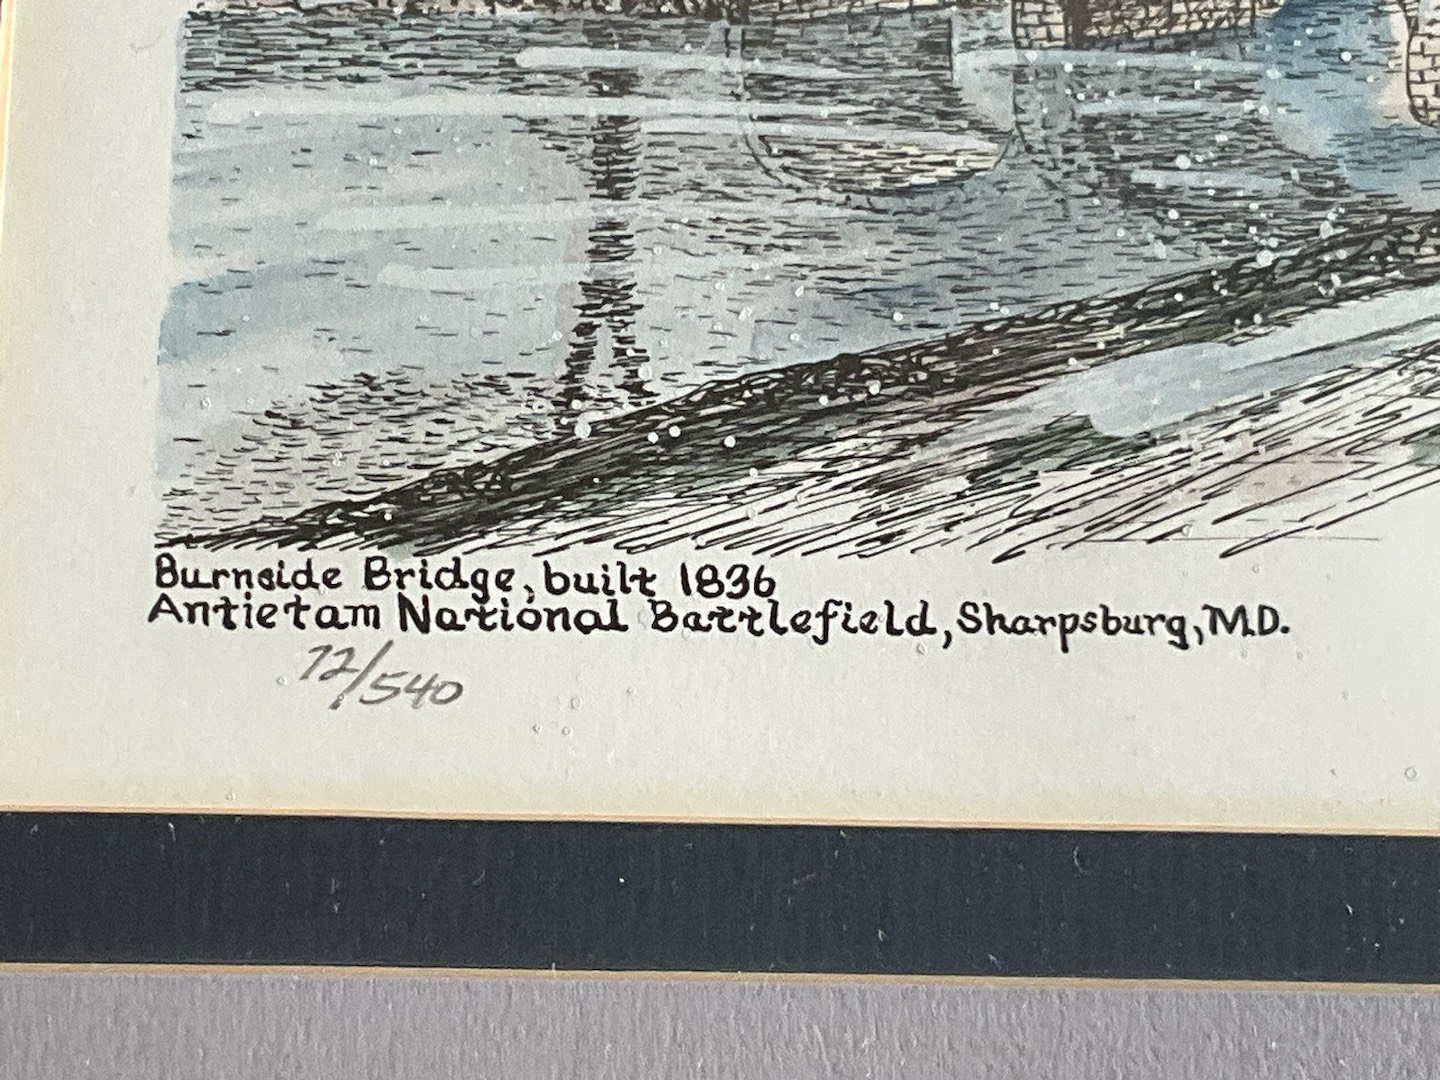 Burnside Bridge, built 1836
Antietam National Battlefield, Sharpsburg, MD.
72/540